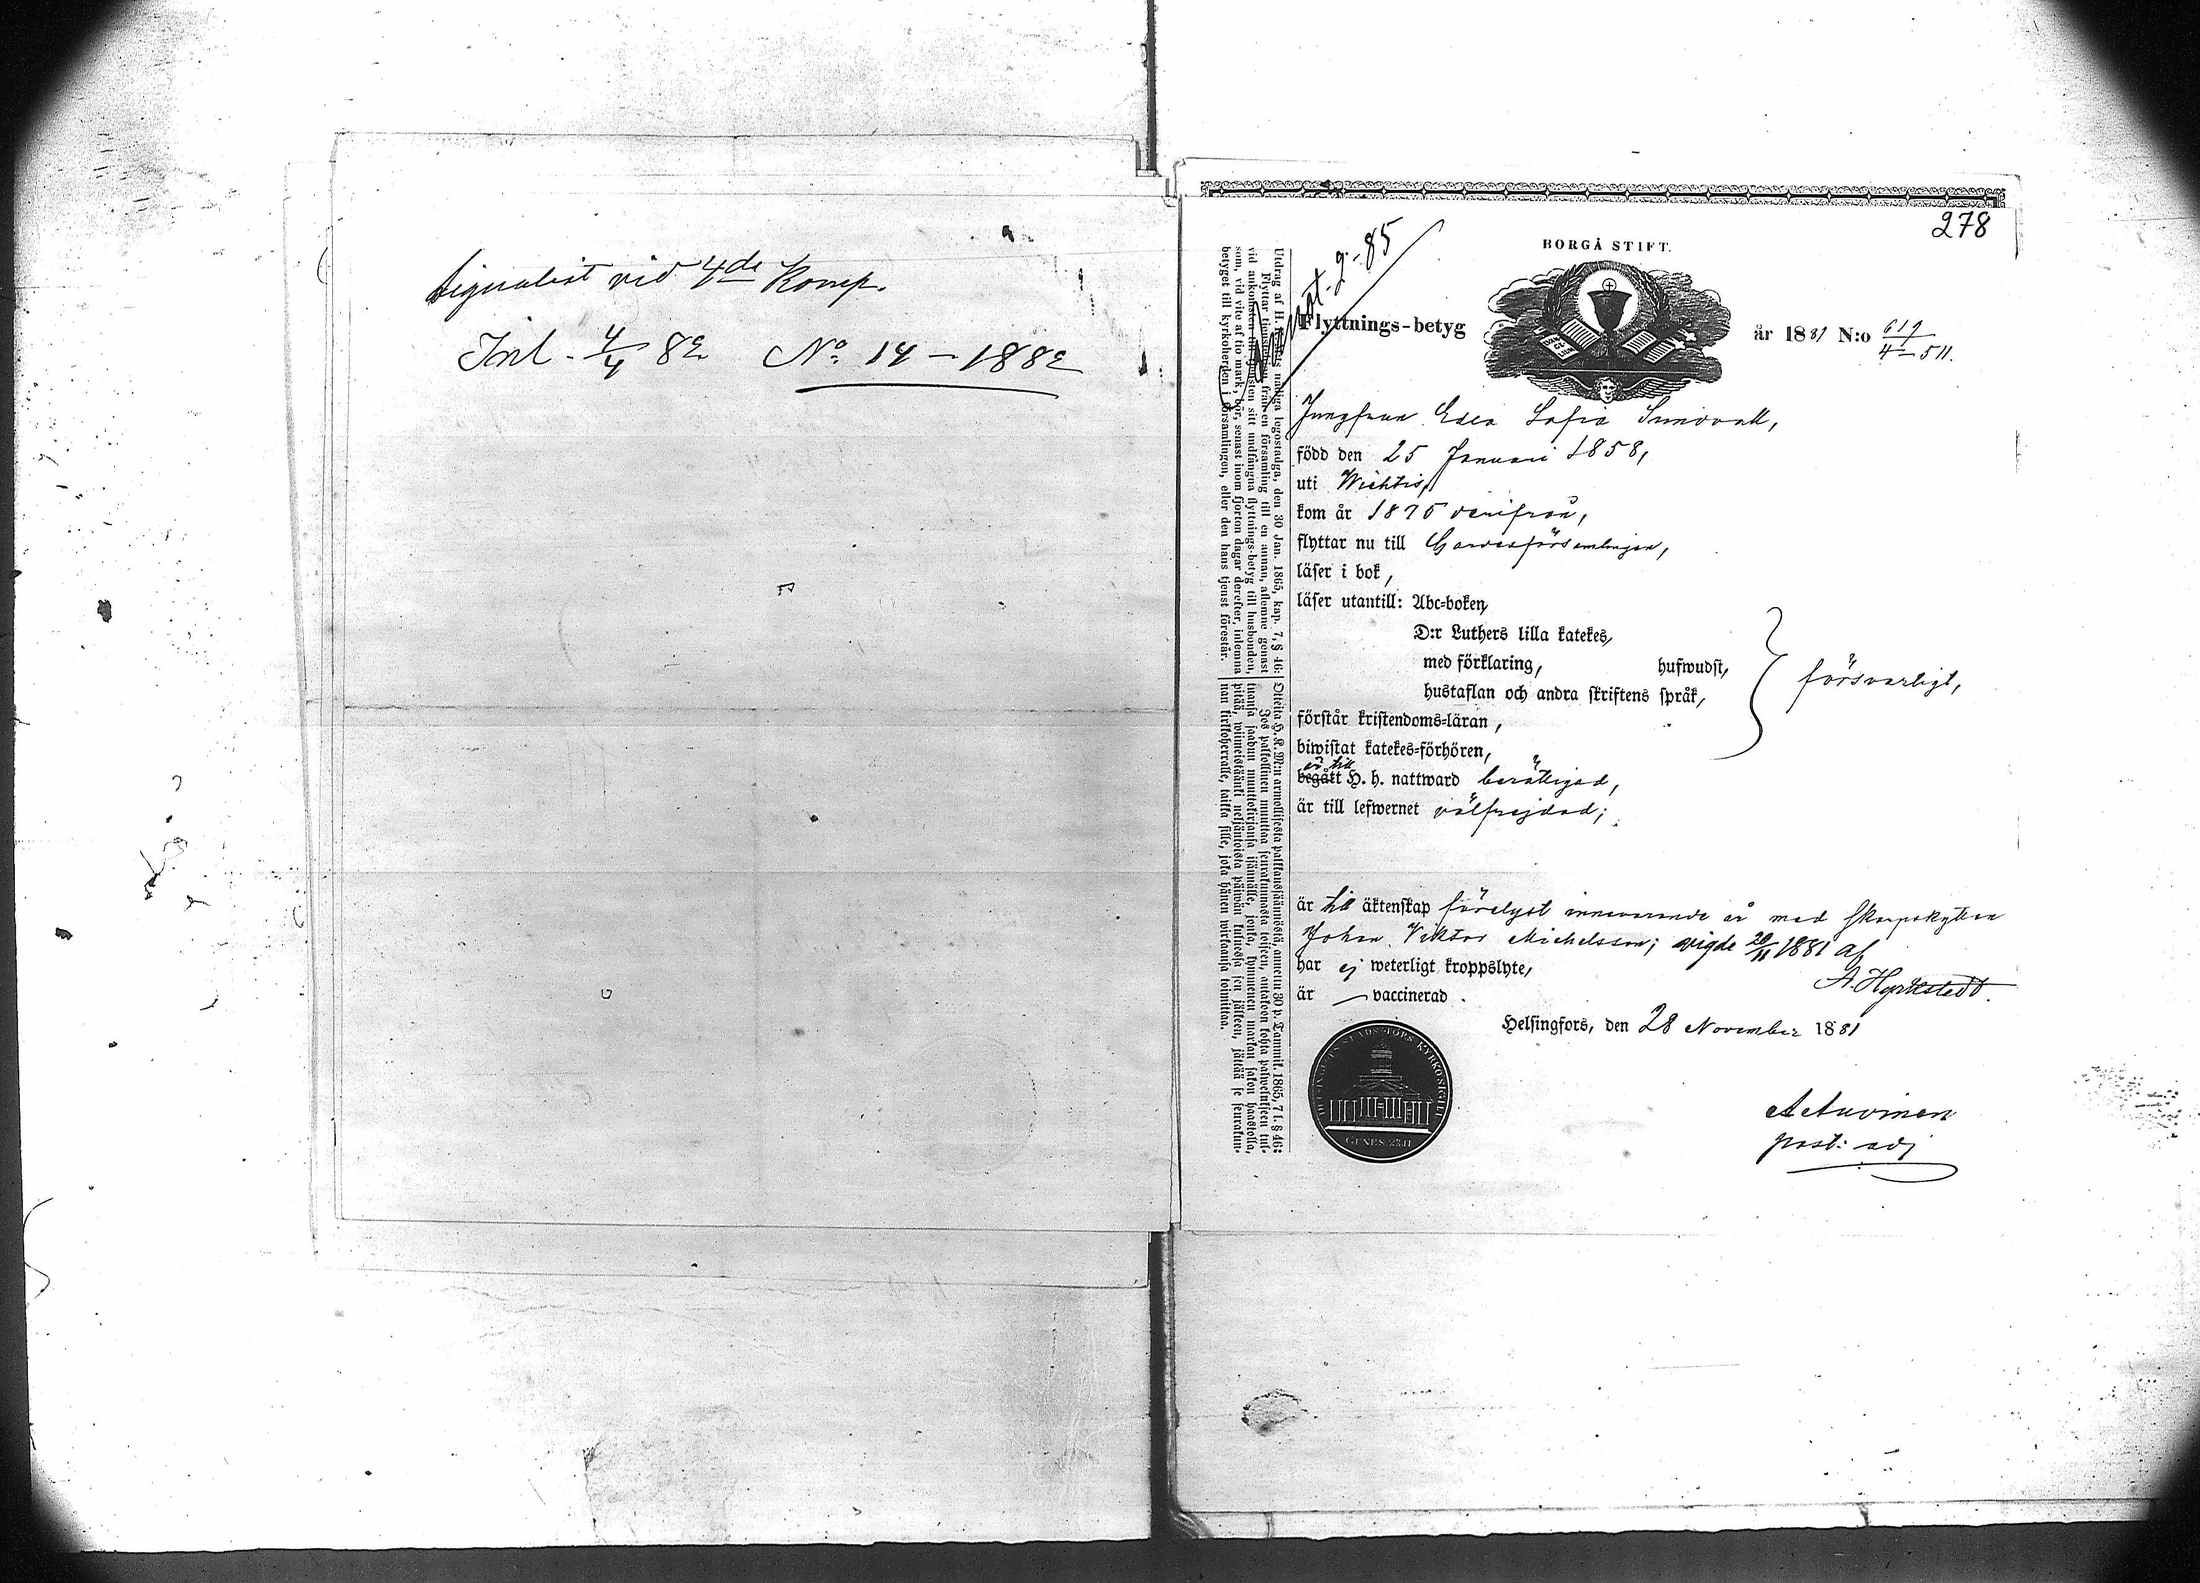 Signalist vid 4de Komp.
Inl. 4/4 82 No 14 – 1882
278
BORGÅ STIFT.
Flyttnings-betyg
år 1881 N:o 619
4 – 511.
Jungfrun Edla Sofia Sundvall,
född den 25 Januari 1858,
uti Wichtis,
kom år 1875 derifrån,
flyttar nu till Gardesförsamlingen,
läser i bok,
läser utantill: Abc-boken,
D:r Luthers lilla katekes,
med förklaring, hufwudst,
hustaflan och andra skriftens språk,
försvarligt,
förstår kristendoms-läran,
biwistat katekes-förhören,
är till
begått H. h. nattward berättigad,
är till lefwernet välfrejdad;
är till äktenskap förelyst innevarande år med Skarpskytten
Johan Viktor Michelsson; vigde 20/11 1881 af
A. Hyrkstedt.
har ej weterligt kroppslyte,
är — vaccinerad.
Helsingfors, den 28 November 1881
past: adj
Utdrag af H. nådiga legostadga, den 30 Jan. 1865, kap. 7, § 46:
Flyttar från en församling till en annan, aflemne genast
vid ankomsten sitt undfångna flyttnings-betyg till husbonden,
som, vid vite af tio mark, bör, senast inom fjorton dagar derefter, inlemna
betyget till kyrkoherden i församlingen, eller den hans tjenst förestår.
Otteita H. K. M:n armollisesta palkkaussäännöstä, annettu 30 p. Tammik. 1865, 7 l. § 46:
Jos palkollinen muuttaa seurakunnasta toiseen, antakoon kohta palvelukseen tul-
tuansa saadun muuttokirjansa isännälle, jonka, kymmenen markan sakon haastolla,
pitää, wiimeistäänki neljäntoista päiwän kuluessa sen jälkeen, jättää se seurakun-
nan kirkkoherralle, taikka sille, joka hänen wirkaansa toimittaa.